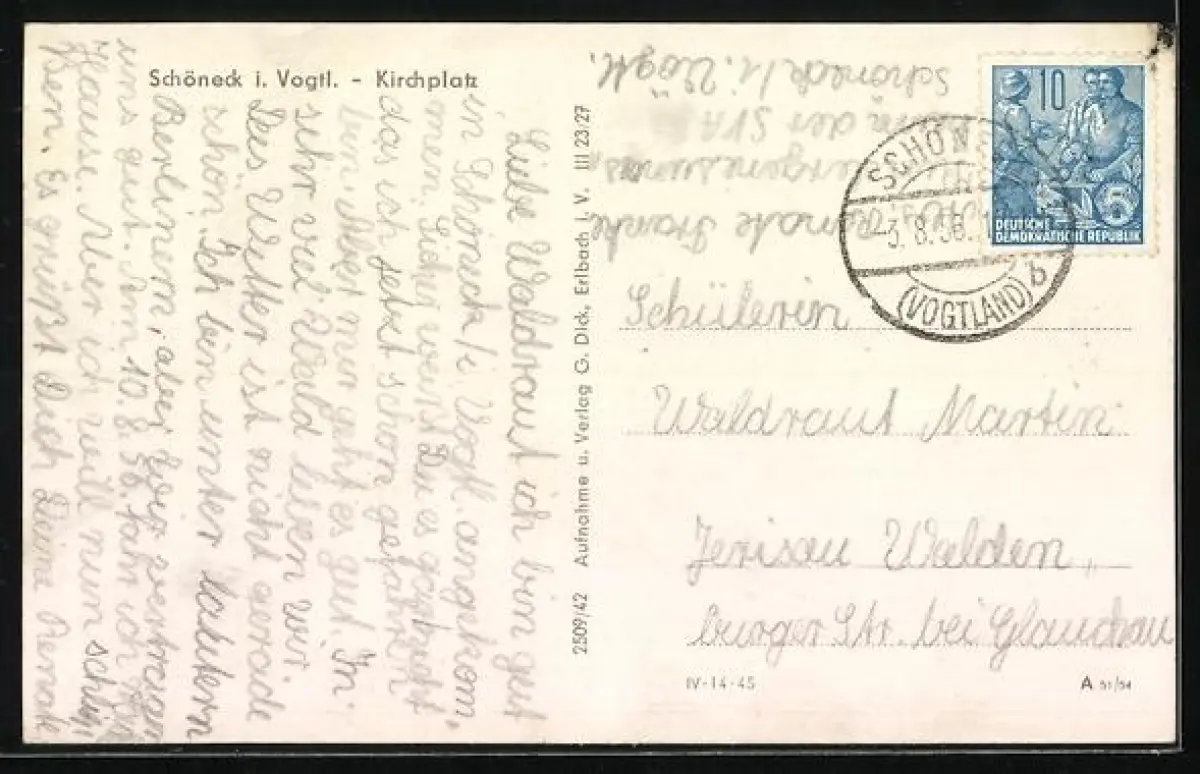 Schöneck i. Vogtl. - Kirchplatz
Liebe Waldraut ich bin gut
in Schöneck/i. Vogtl. angekom,
men. Sicher weißt Du es gar nicht
das ich jetzt schon gefahren
bin. Aber nun geht es gut. In
sehr viel Wald leben wir.
Das Wetter ist nicht gerade
schön. Ich bin unter lautern
Berlinern, aber wir vertragen
uns gut. Am 10.8.56. fahr ich
Hause. Aber ich will nun schlie,
ßen. Es grüßt Dich Deine Renate
2509/42 Aufnahme u. Verlag G. Dick, Erlbach i. V. III 23 27
Renate
in der SVA
Schöneck/i. Vogtl.
10
5
DEUTSCHE
DEMOKRATISCHE REPUBLIK
SCHÖNE
-3.8.56.
(VOGTLAND)
b
Schülerin
Waldraut Martin
Jerisau Walden,,
burger Str. bei Glauchau
IV-14-45
A 51/54